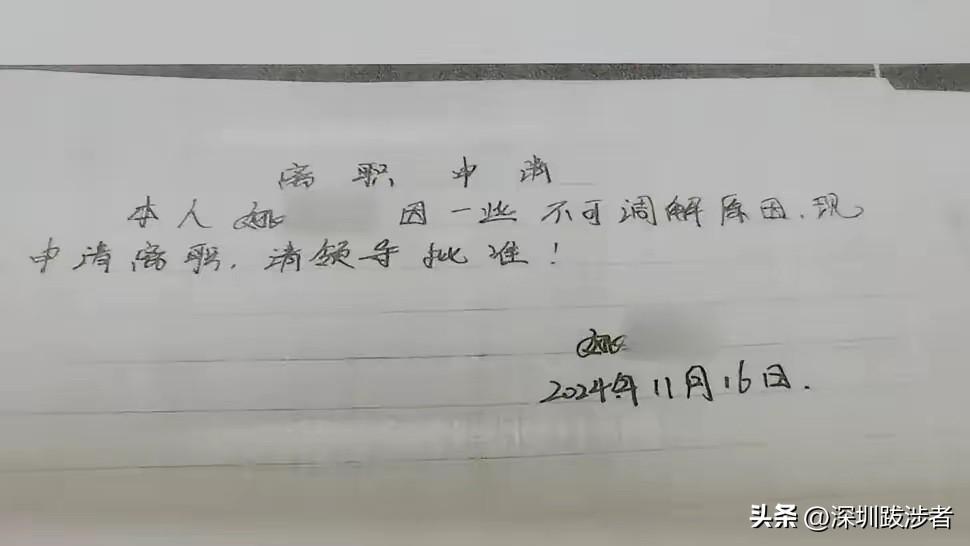 离职申请
本人姚 因一些不可调解原因、现
申请离职，请领导批准！
姚
2024年11月16日.
头条 @深圳跋涉者